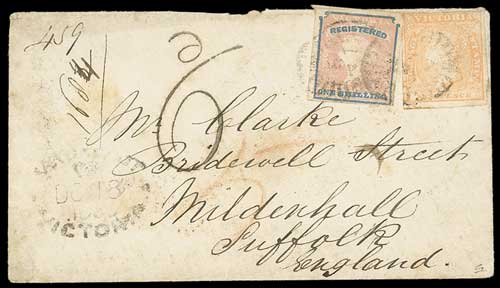 REGISTERED
ONE SHILLING
VICTORIA
459
1684
6
Mr Clarke
Bridewell Street
Mildenhall
Suffolk
England.
DE 18
VICTORIA